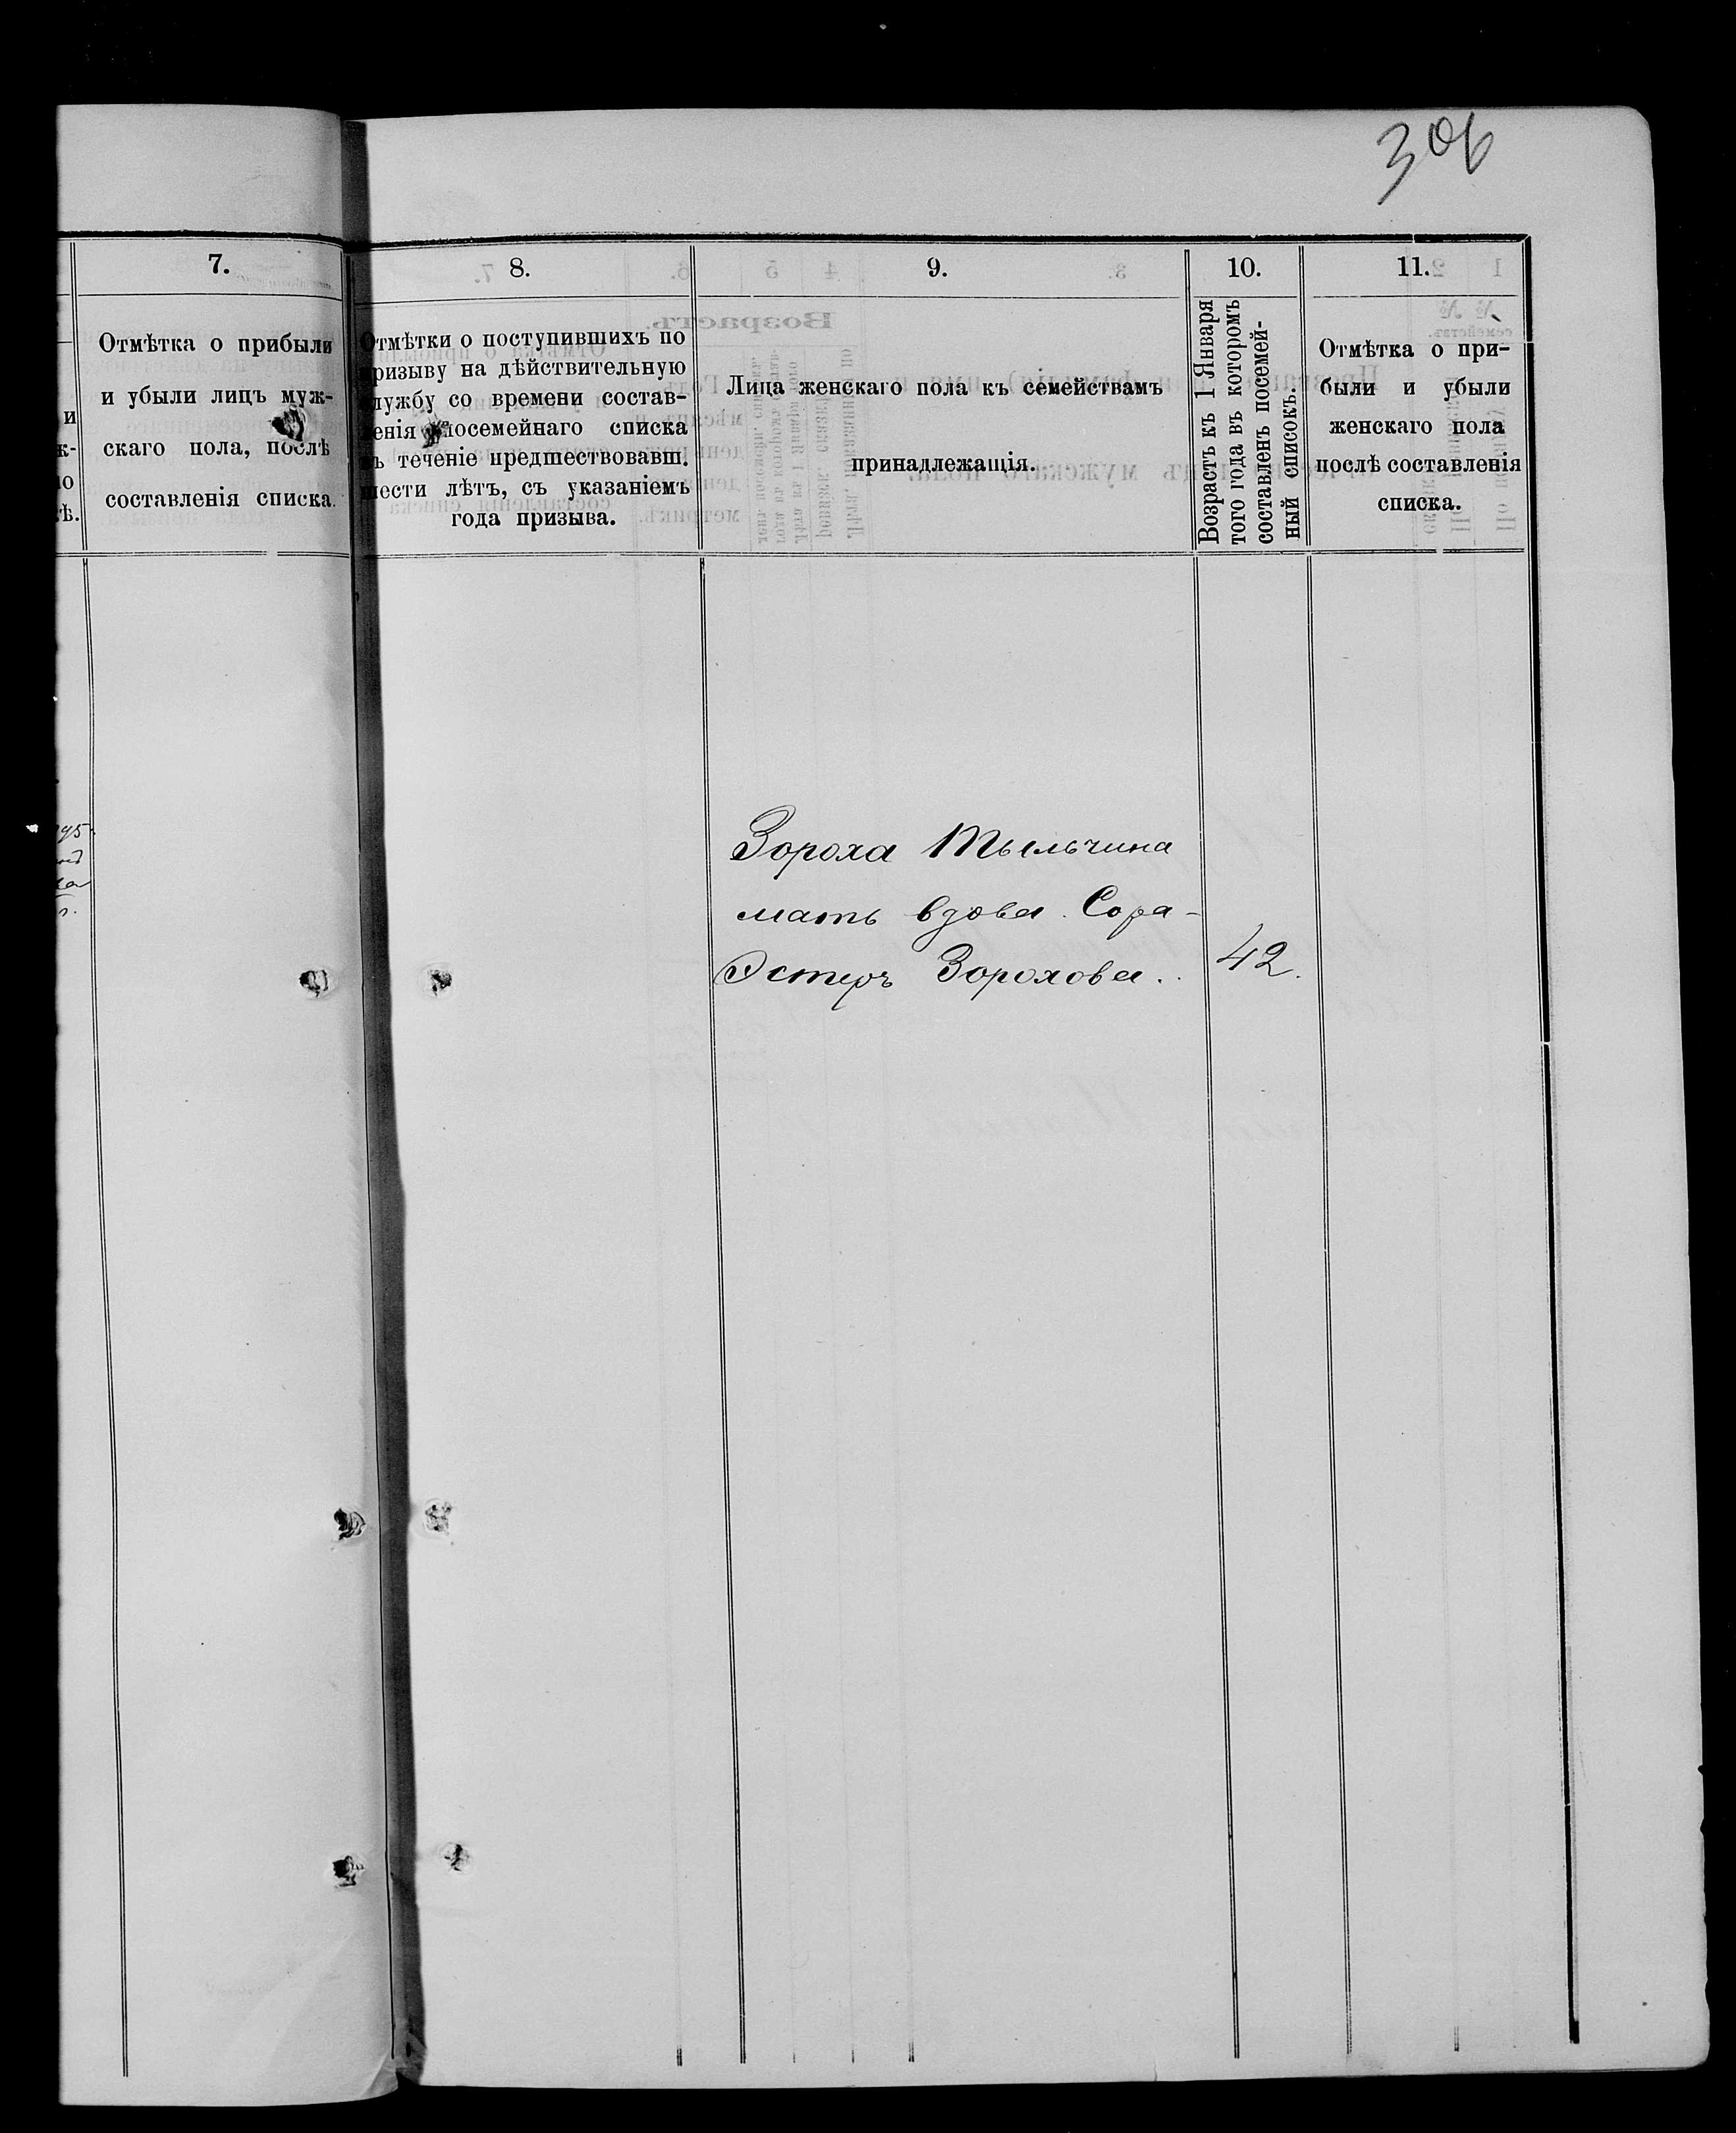 306
7.
Отмѣтка о прибыли
и убыли лицъ муж-
скаго пола, послѣ
составленія списка.
8.
Отмѣтки о поступившихъ по
призыву на дѣйствительную
службу со времени состав-
ленія посемейнаго списка
въ теченіе предшествовавш.
шести лѣтъ, съ указаніемъ
года призыва.
9.
Лица женскаго пола къ семействамъ
принадлежащія.
10.
Возрастъ къ 1 Января
того года въ которомъ
составленъ посемей-
ный списокъ.
11.
Отмѣтка о при-
были и убыли
женскаго пола
послѣ составленія
списка.
Зороха Тыльчина
мать вдова Сора-
Эстеръ Зорохова.
42.